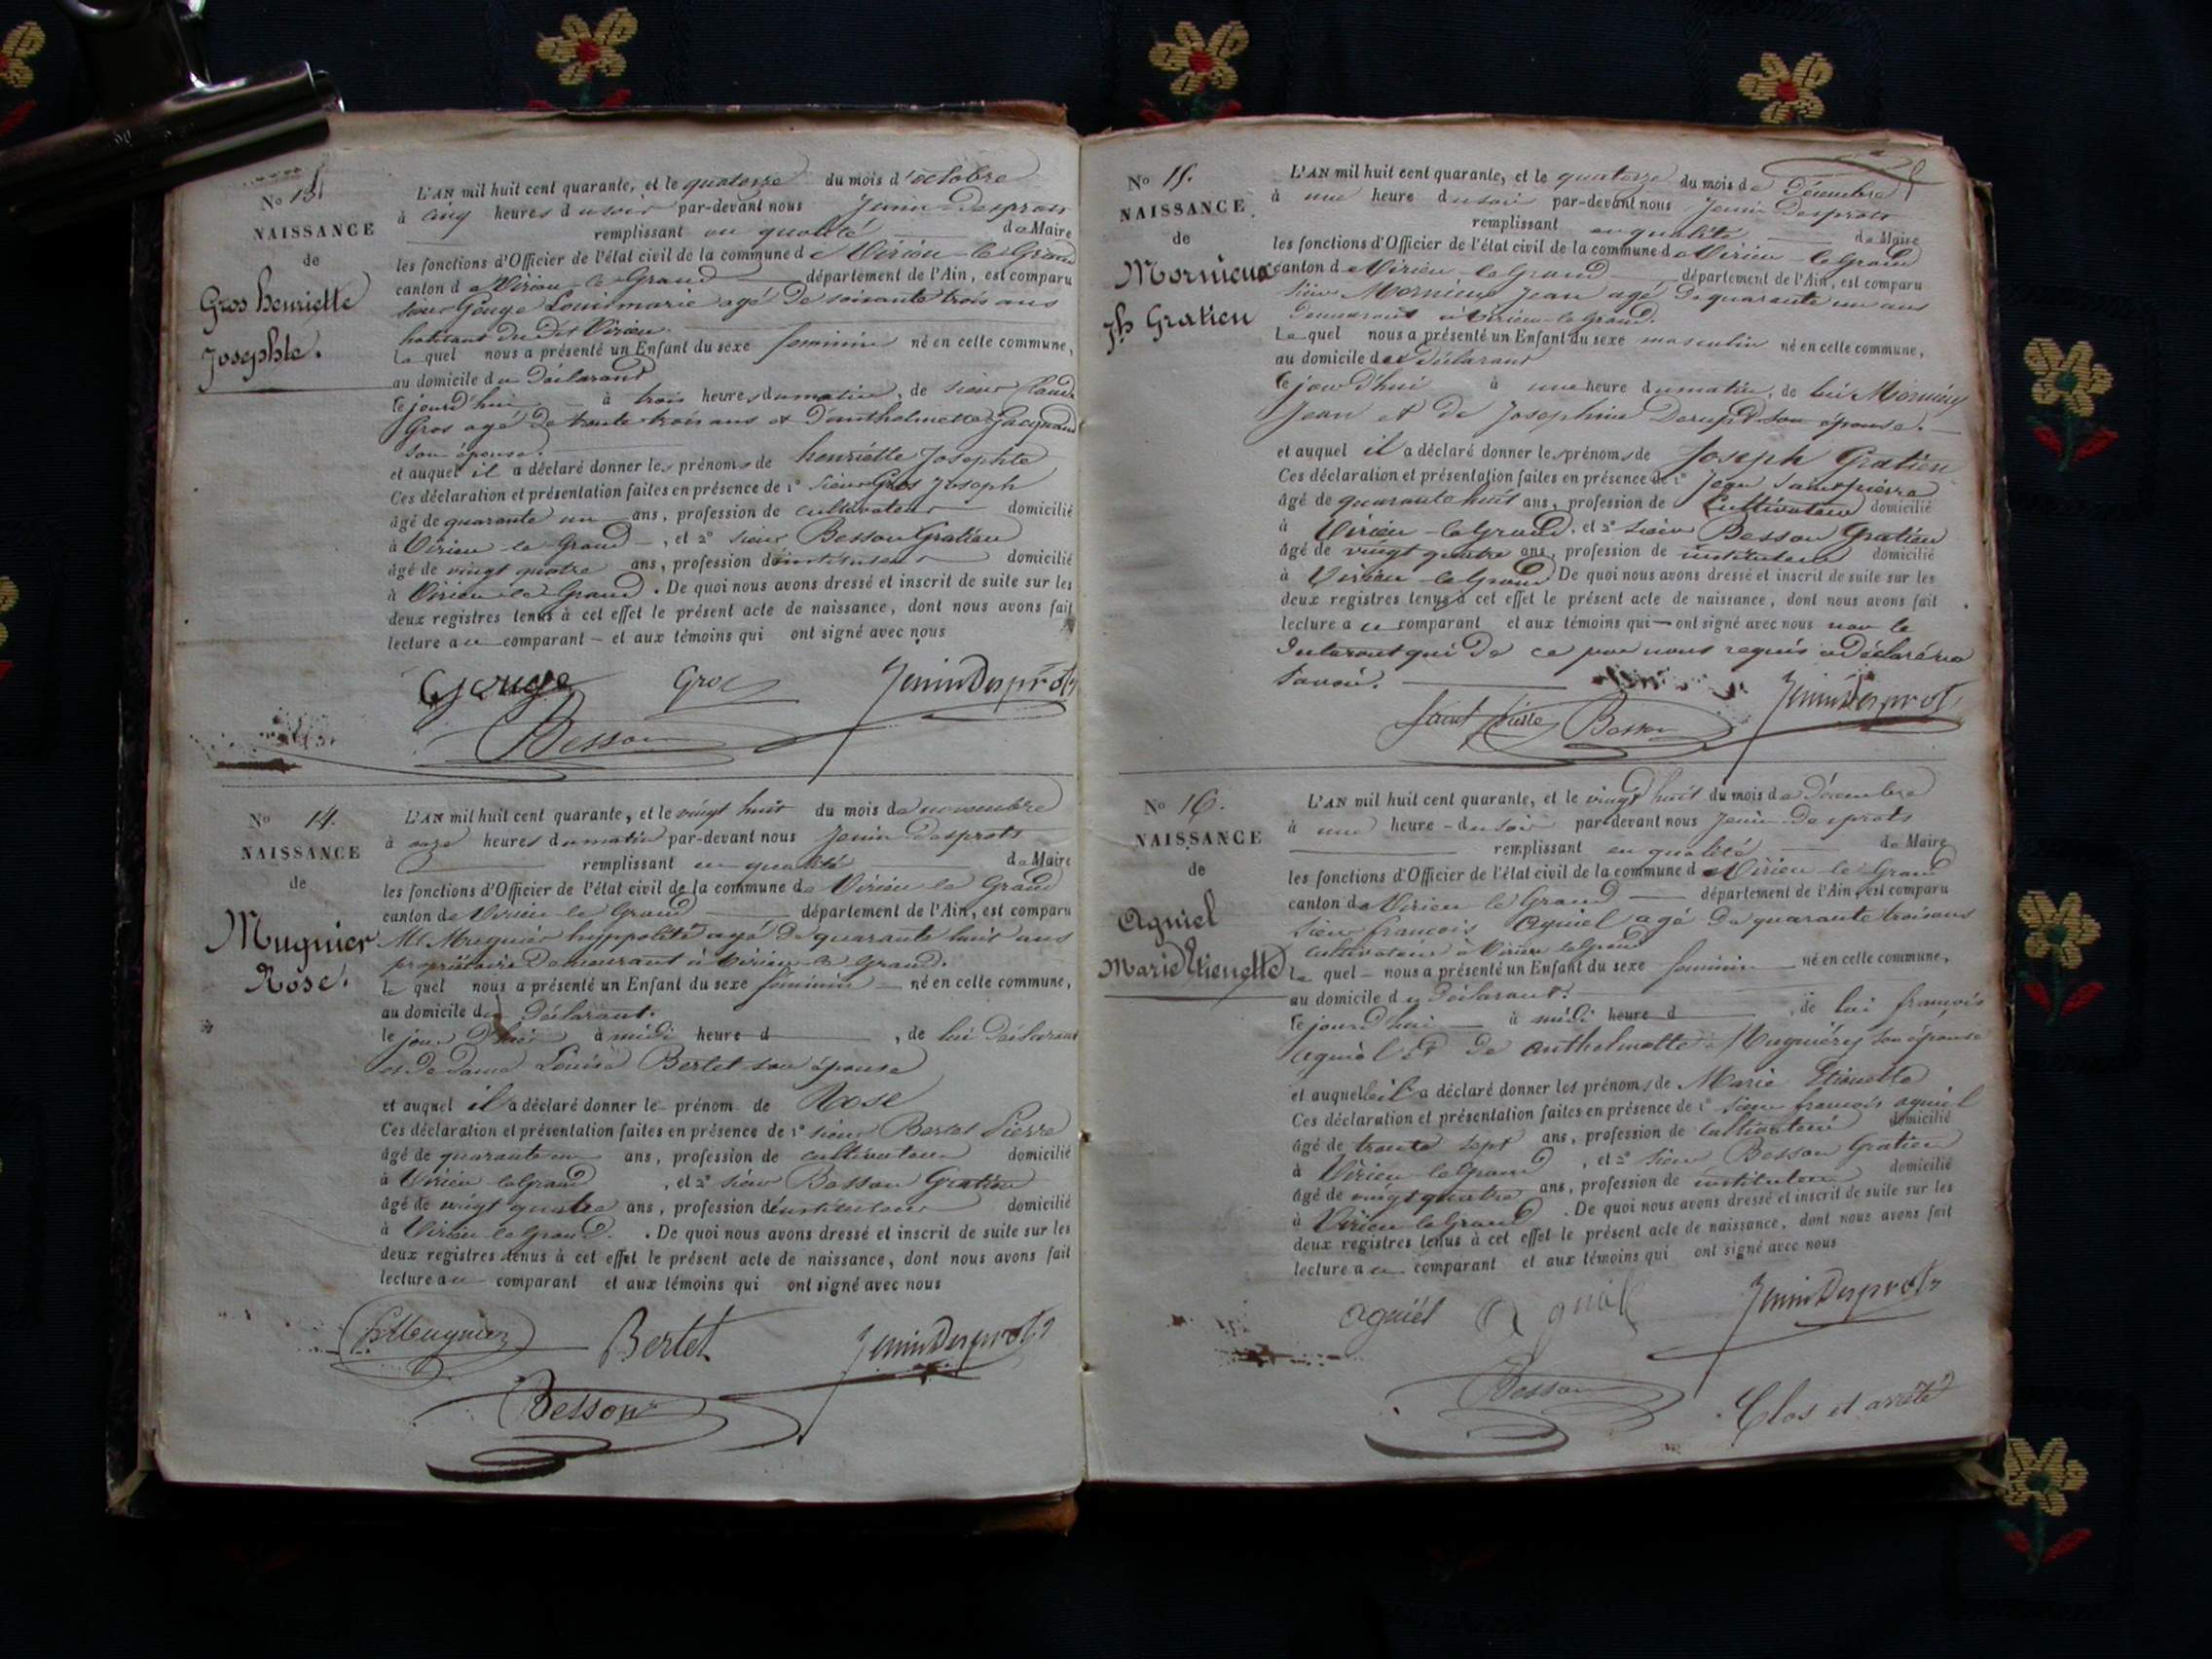 No 13
NAISSANCE
de
Gros henriette
Josephte.
L'AN mil huit cent quarante, et le quatorze du mois d'octobre
à cinq heures du soir par-devant nous Jenin Desprots
remplissant en qualité de Maire
les fonctions d'Officier de l'état civil de la commune de Virieu-le-Grand
canton de Virieu-le-Grand département de l'Ain, est comparu
sieur Gouge Louis marie agé de soixante trois ans
habitant du dit Virieu.
Le quel nous a présenté un Enfant du sexe feminin né en celle commune,
au domicile du Déclarant
le jourd'hui à trois heures du matin, de sieur Claude
Gros agé de trente trois ans et d'anthelmette Jacquand
son épouse.
et auquel il a déclaré donner les prénoms de henriette Josephte
Ces déclaration et présentation faites en présence de 1° sieur Gros Joseph
âgé de quarante un ans, profession de cultivateur domicilié
à Virieu-le-Grand, et 2° sieur Besson Gratien
âgé de vingt quatre ans, profession d'instituteur domicilié
à Virieu-le-Grand. De quoi nous avons dressé et inscrit de suite sur les
deux registres tenus à cet effet le présent acte de naissance, dont nous avons fait
lecture au comparant et aux témoins qui ont signé avec nous
Gouge Gros JeninDesprots
Besson
No 14.
NAISSANCE
de
Mugnier
Rose.
L'AN mil huit cent quarante, et le vingt huit du mois de novembre
à onze heures du matin par-devant nous Jenin Desprots
remplissant en qualité de Maire
les fonctions d'Officier de l'état civil de la commune de Virieu le Grand
canton de Virieu-le-Grand département de l'Ain, est comparu
Mr Mugnier hyppolite agé de quarante huit ans
propriétaire demeurant à Virieu-le-Grand.
le quel nous a présenté un Enfant du sexe féminin né en celle commune,
au domicile du Déclarant.
le jour d'hier à midi heure d , de lui Déclarant
et de dame Louise Bertet son épouse
et auquel il a déclaré donner le prénom de Rose
Ces déclaration et présentation faites en présence de 1° sieur Bertet Pierre
âgé de quarante un ans, profession de cultivateur domicilié
à Virieu-le-Grand, et 2° sieur Besson Gratien
âgé de vingt quatre ans, profession d'instituteur domicilié
à Virieu-le-Grand. De quoi nous avons dressé et inscrit de suite sur les
deux registres tenus à cet effet le présent acte de naissance, dont nous avons fait
lecture au comparant et aux témoins qui ont signé avec nous
Mugnier Bertet JeninDesprots
Besson
No 15.
NAISSANCE
de
Mornieux
Jh Gratien
L'AN mil huit cent quarante, et le quatorze du mois de Décembre
à une heure du soir par-devant nous Jenin Desprots
remplissant en qualité de Maire
les fonctions d'Officier de l'état civil de la commune de Virieu-le-Grand
canton de Virieu-le-Grand département de l'Ain, est comparu
sieur Mornieux Jean agé de quarante un ans
demeurant à Virieu-le-Grand.
Le quel nous a présenté un Enfant du sexe masculin né en celle commune,
au domicile du Déclarant
le jourd'hui à une heure du matin, de lui Mornieux
Jean et de Josephine son épouse.
et auquel il a déclaré donner les prénoms de Joseph Gratien
Ces déclaration et présentation faites en présence de 1° Jean Saintpierre
âgé de quarante huit ans, profession de Cultivateur domicilié
à Virieu-le-Grand, et 2° sieur Besson Gratien
âgé de vingt quatre ans, profession de instituteur domicilié
à Virieu-le-Grand De quoi nous avons dressé et inscrit de suite sur les
deux registres tenus à cet effet le présent acte de naissance, dont nous avons fait
lecture au comparant et aux témoins qui ont signé avec nous non le
Déclarant qui de ce par nous requis a déclaré ne
savoir.
Besson JeninDesprots
No 16.
NAISSANCE
de
Aguiel
Marie Etienette
L'AN mil huit cent quarante, et le vingt huit du mois de Décembre
à une heure du soir par-devant nous Jenin Desprots
remplissant en qualité de Maire
les fonctions d'Officier de l'état civil de la commune de Virieu-le-Grand
canton de Virieu le Grand département de l'Ain, est comparu
sieur françois Aguiel agé de quarante trois ans
cultivateur à Virieu le Grand
Le quel nous a présenté un Enfant du sexe feminin né en celle commune,
au domicile du Déclarant.
le jourd'hui à midi heure d , de lui françois
aguiel Et de anthelmette Mugniery son épouse
et auquel il a déclaré donner les prénoms de Marie Etienette
Ces déclaration et présentation faites en présence de 1° sieur françois aguiel
âgé de trente sept ans, profession de cultivateur domicilié
à Virieu-le-Grand, et 2° sieur Besson Gratien
âgé de vingt quatre ans, profession de instituteur domicilié
à Virieu le Grand. De quoi nous avons dressé et inscrit de suite sur les
deux registres tenus à cet effet le présent acte de naissance, dont nous avons fait
lecture au comparant et aux témoins qui ont signé avec nous
aguiel Aguiel JeninDesprots
Besson
Clos et arrêté